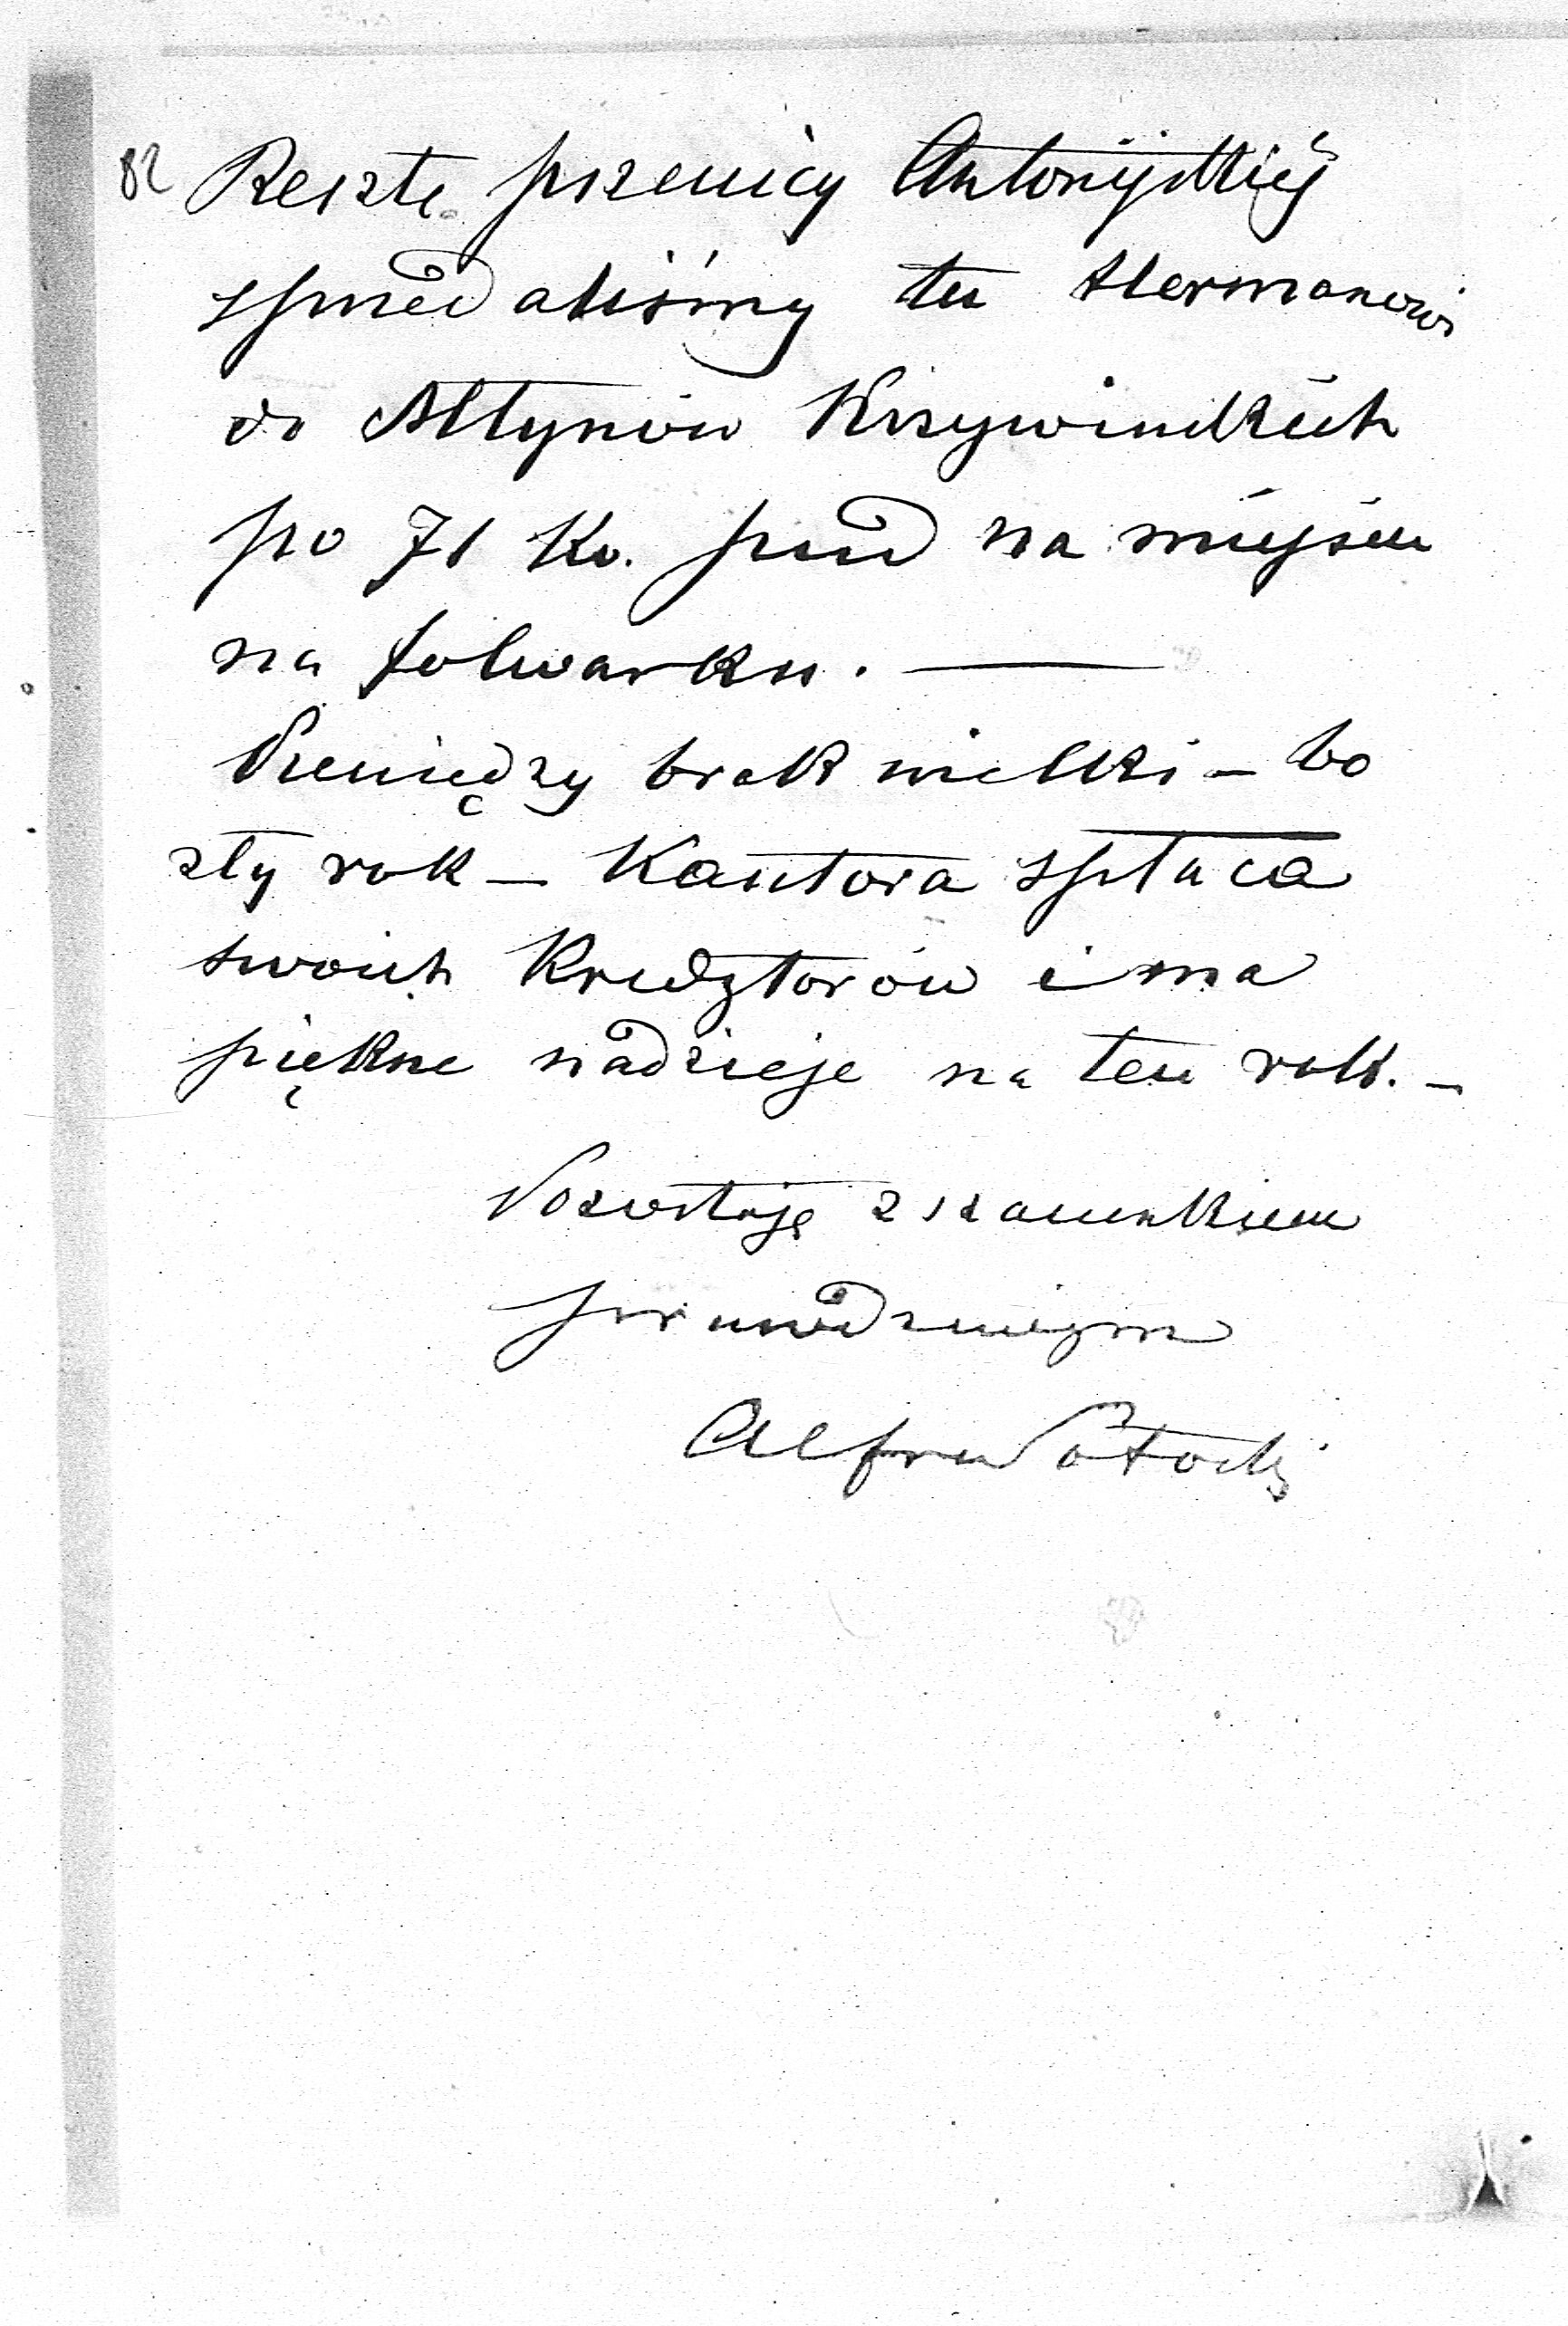 82 Resztę pszenicy Antonijskiéj
sprzedaliśmy tu Hermanowi
do Młynów Krzywińskich
po 71 Ko. pud na miejscu
na folwarku. —
Pieniędzy brak wielki – bo
zły rok – Kantora spłaca
swoich Kredytorów i ma
piękne nadzieje na ten rok. –
Pozostaję z szacunkiem
prawdziwym
Alfred Potocki